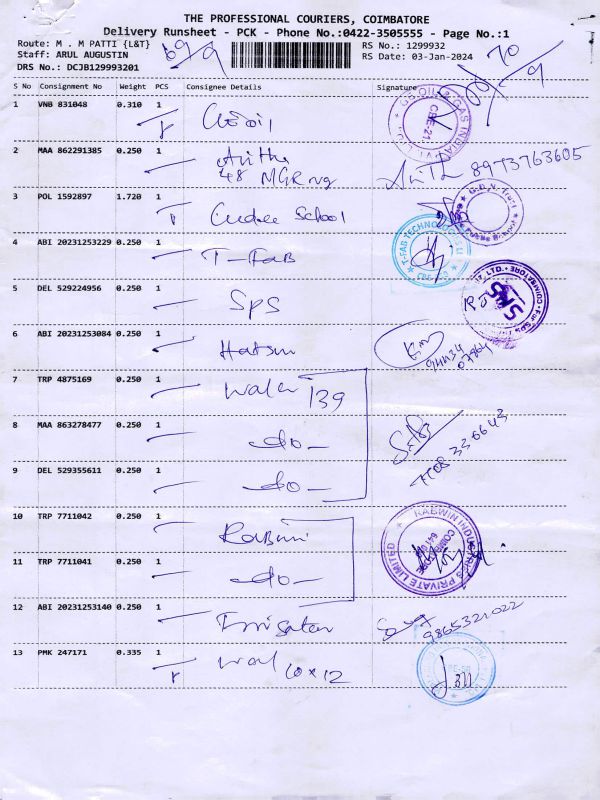 THE PROFESSIONAL COURIERS, COIMBATORE
Delivery Runsheet - PCK - Phone No.:0422-3505555 - Page No.:1
Route: M . M PATTI {L&T} 69/9 RS No.: 1299932 70/9
Staff: ARUL AUGUSTIN RS Date: 03-Jan-2024
DRS No.: DCJB129993201
S No Consignment No Weight PCS Consignee Details Signature
1 VNB 831048 0.310 1
2 MAA 862291385 0.250 1 Anitha 8973763605
48 MGR ng
3 POL 1592897 1.720 1 School
4 ABI 20231253229 0.250 1 T-FAB T-FAB TECHNOLOGIES
5 DEL 529224956 0.250 1 SPS SNS
6 ABI 20231253084 0.250 1 Hatsun
7 TRP 4875169 0.250 1 139
8 MAA 863278477 0.250 1 -do-
9 DEL 529355611 0.250 1 -do-
10 TRP 7711042 0.250 1 RABWIN INDUSTRIES PRIVATE LIMITED
11 TRP 7711041 0.250 1 -do-
12 ABI 20231253140 0.250 1 9865321022
13 PMK 247171 0.335 1 10x12